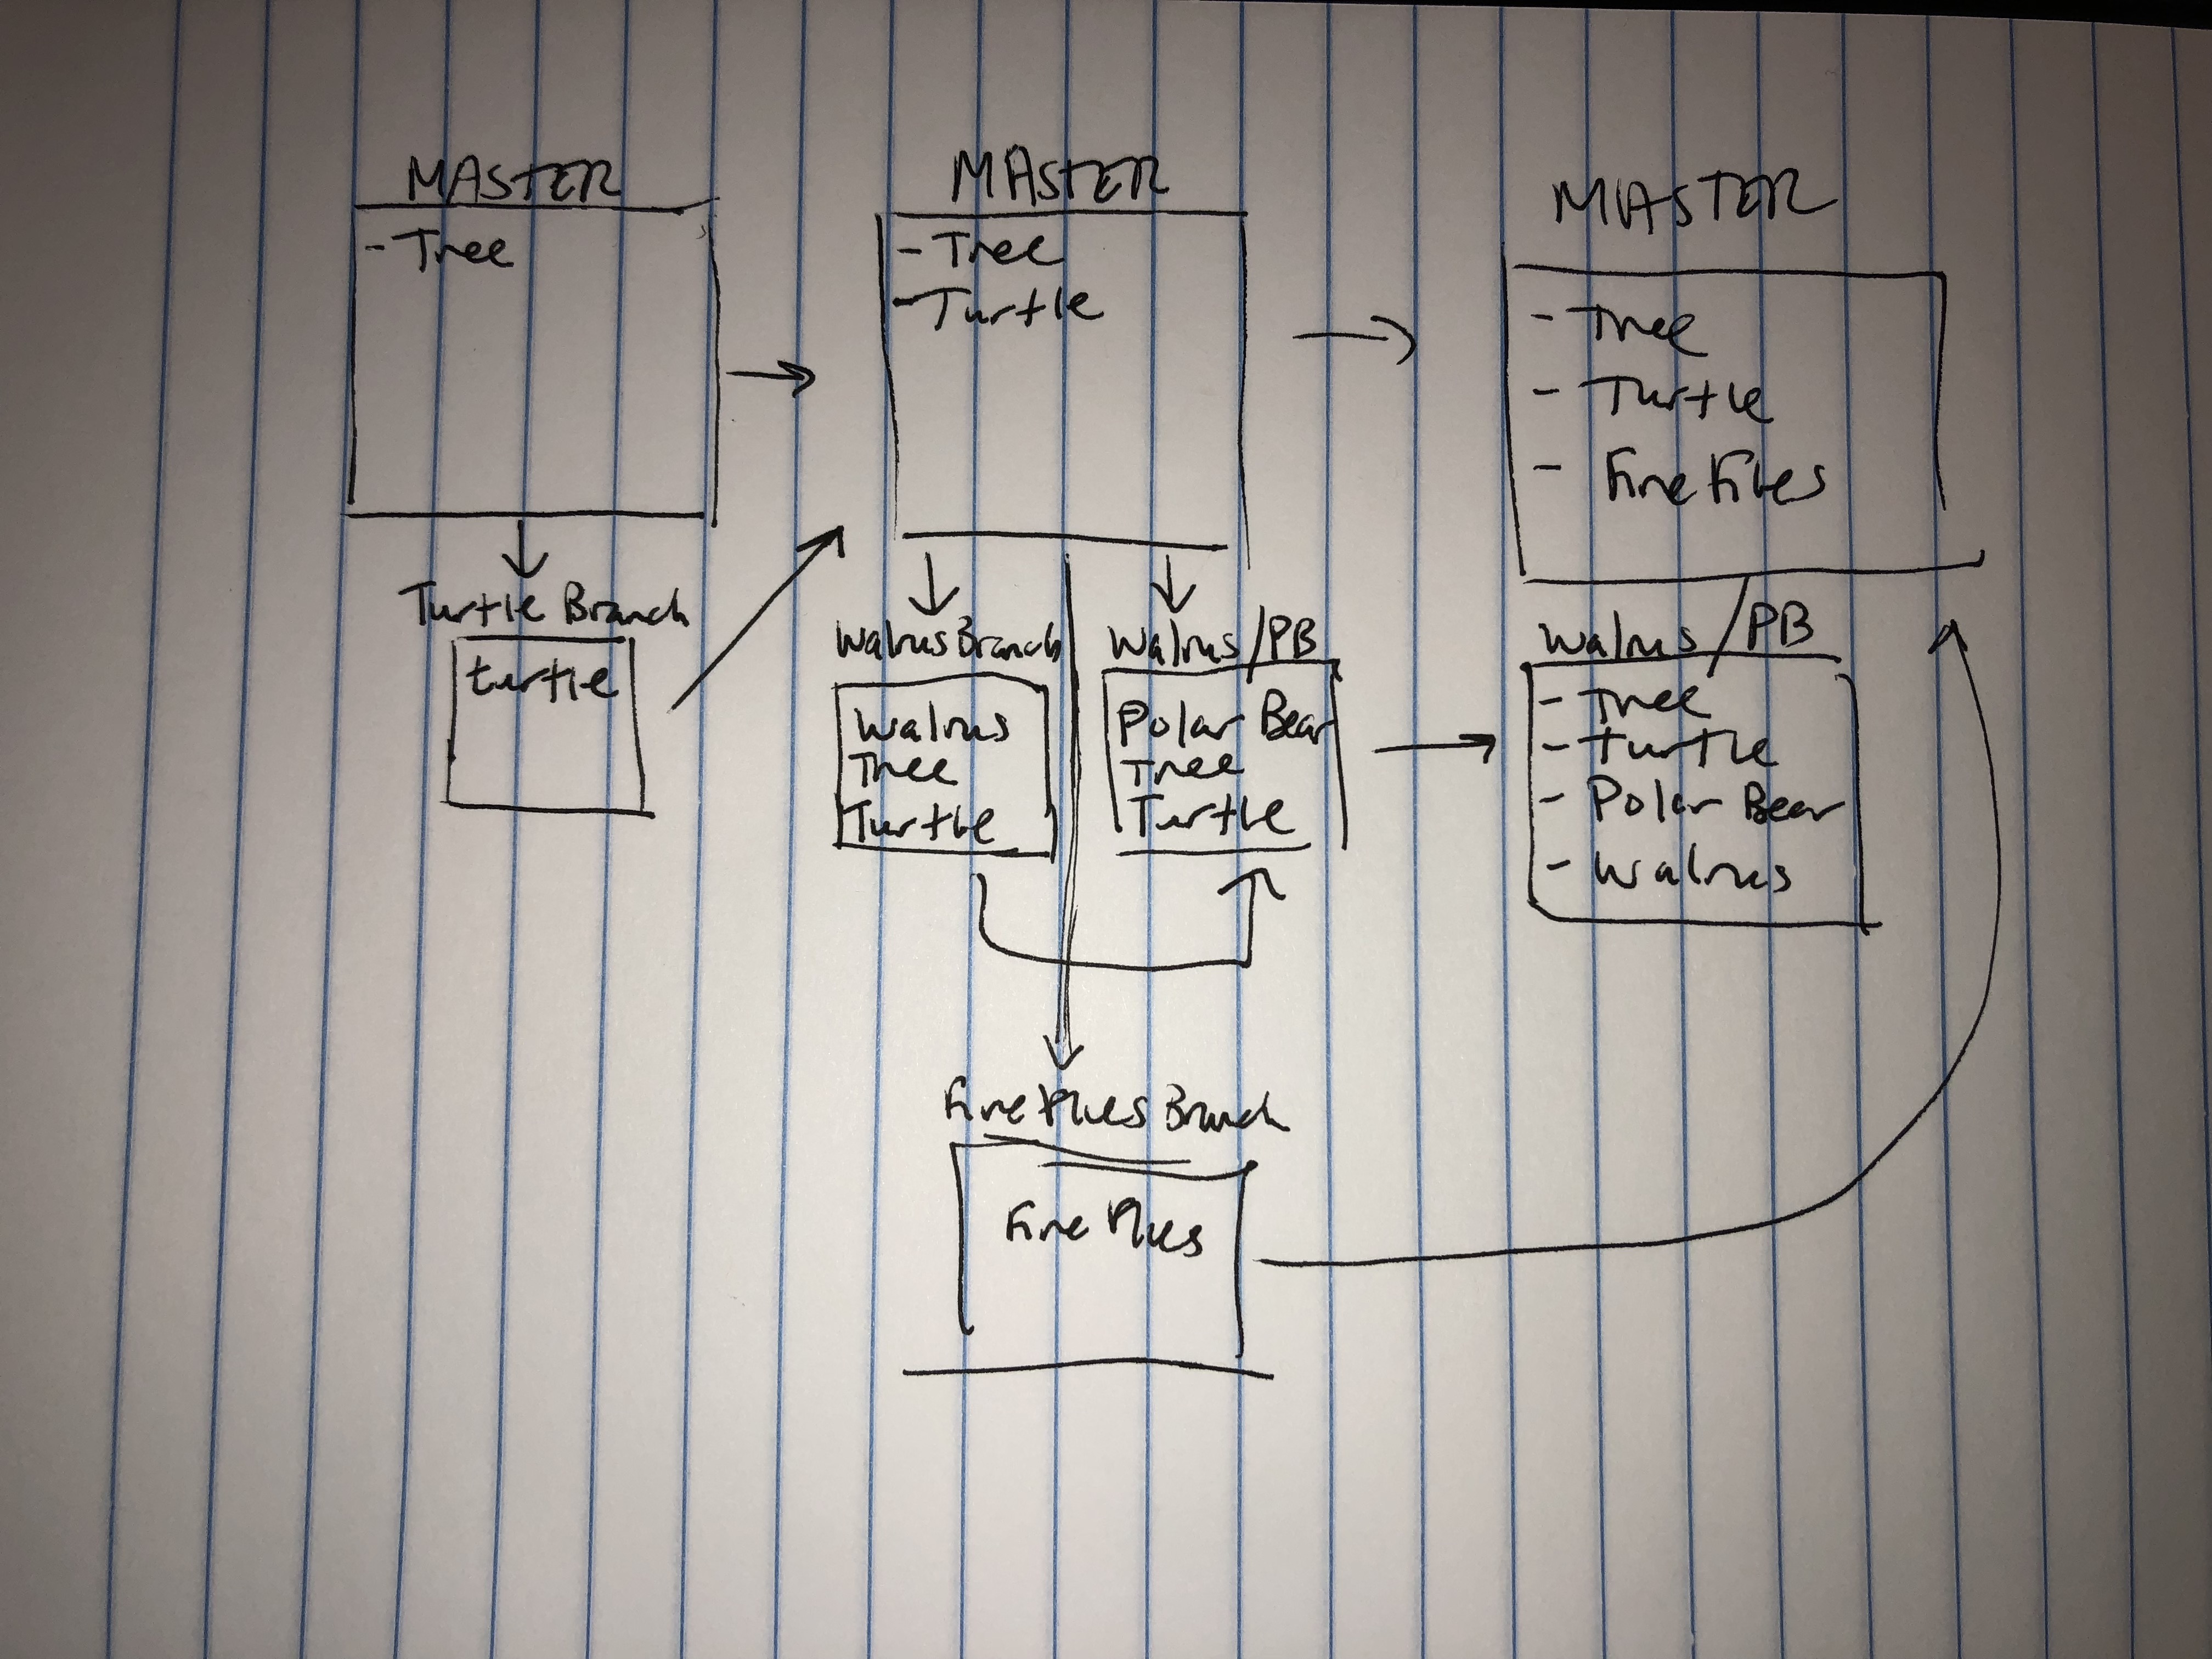 MASTER
- Tree
Turtle Branch
turtle
MASTER
- Tree
- Turtle
Walrus Branch
Walrus
Tree
Turtle
Walrus/PB
Polar Bear
Tree
Turtle
Fire Flies Branch
Fire Flies
MASTER
- Tree
- Turtle
- Fire Flies
Walrus/PB
- Tree
- Turtle
- Polar Bear
- Walrus